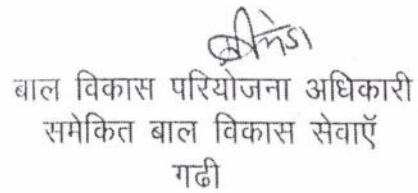 बाल विकास परियोजना अधिकारी
समेकित बाल विकास सेवाऍ
गढी